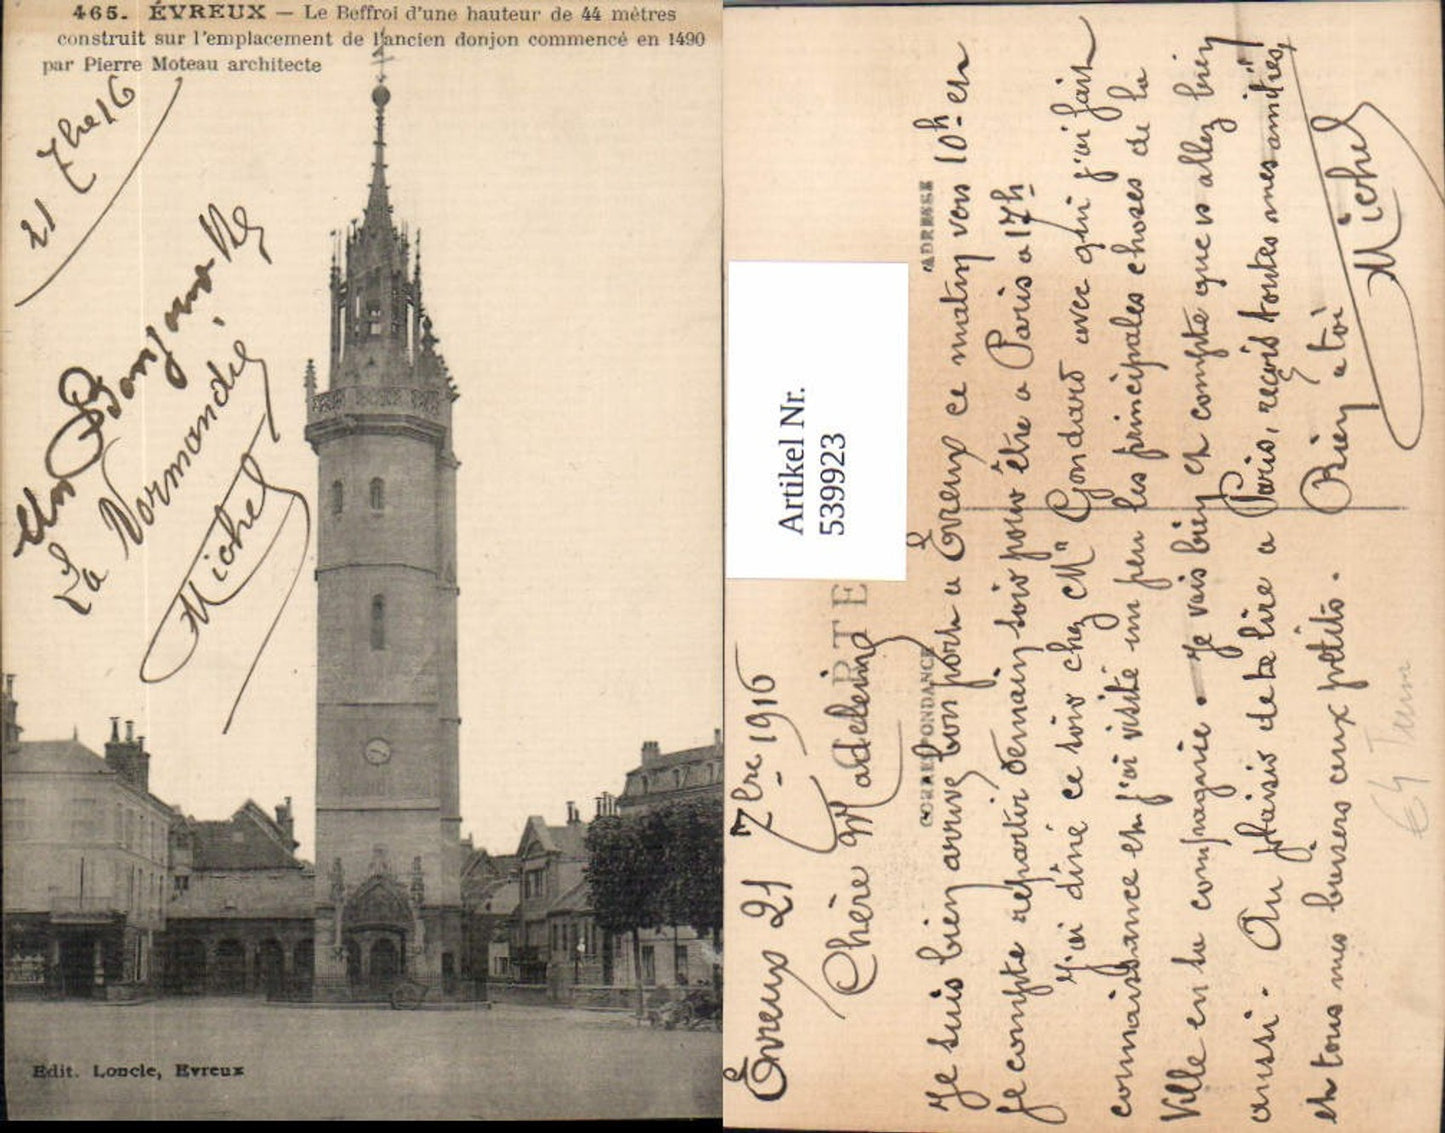 465. ÉVREUX — Le Beffroi d'une hauteur de 44 mètres
construit sur l'emplacement de l'ancien donjon commencé en 1490
par Pierre Moteau architecte
21 7bre 16
Un Bonjour de
La Normandie
Michel
Edit. Loncle, Evreux
Artikel Nr.
539923
CARTE
CORRESPONDANCE
ADRESSE
Évreux 21 7bre 1916
Chère Madeleine
Je suis bien arrivé bon port a Évreux ce matin vers 10h et
je compte repartir demain soir pour être a Paris a 17h
J'ai diné ce soir chez Mr Gondard avec qui j'ai fait
connaissance et j'ai visité un peu les principales choses de la
Ville en sa compagnie. Je vais bien et compte que vs allez bien
aussi. Au plaisir de te lire a Paris, reçois toutes mes amitiés,
et tous mes baisers aux petits. Bien a toi
Michel